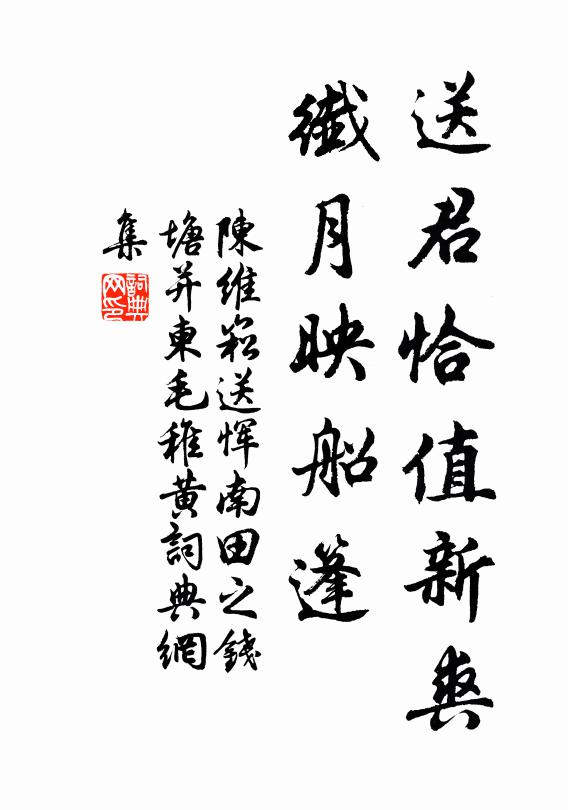 送君恰值新爽
纖月映船篷
陳維崧送惲南田之錢
塘并東毛稚黃詞典網
集
詞典
网印